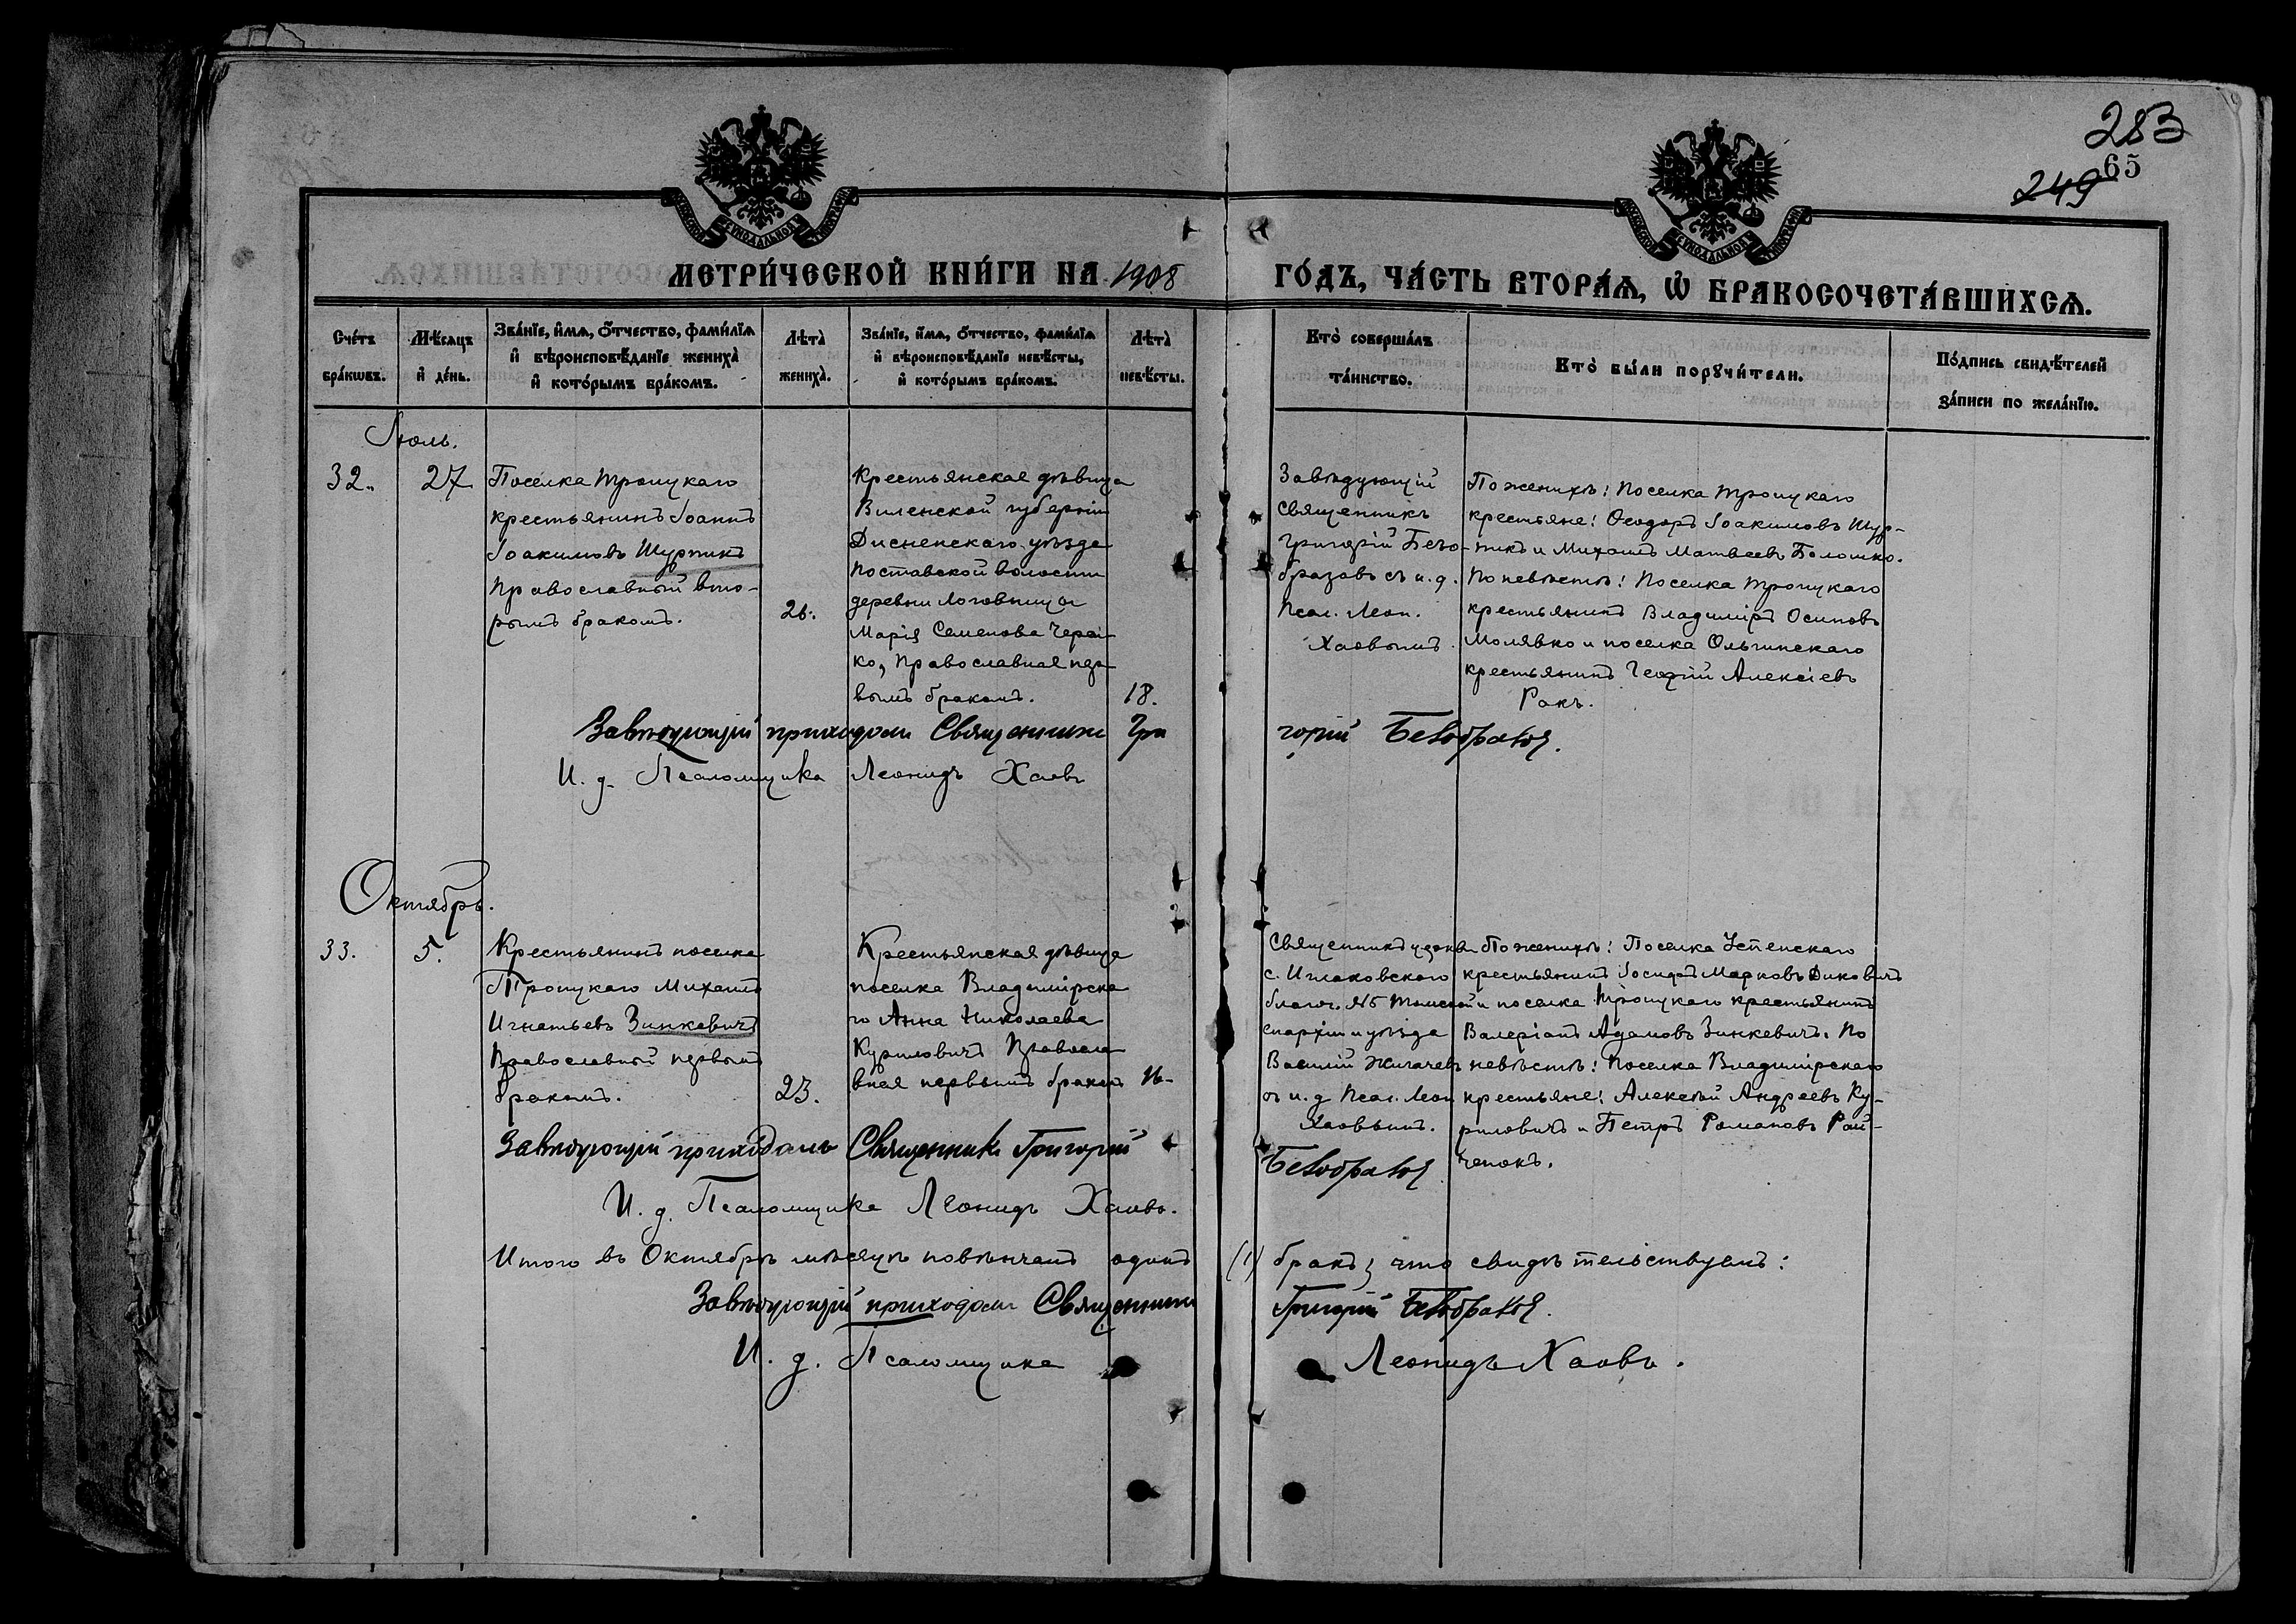 283
65
249
МЕТРИ́ЧЕСКОЙ КНИ́ГИ НА 1908 ГО́ДЪ, ЧА́СТЬ ВТОРА́Ѧ, Ѡ БРАКОСОЧЕТА́ВШИХСѦ.
Сче́тъ
бра́кѡвъ.
Мѣ́сѧцъ
и҆ де́нь.
Зва́нїе, и҆́мѧ, ѻ҆́тчество, фами́лїѧ
и҆ вѣроисповѣ́данїе жениха̀
и҆ кото́рымъ бра́комъ.
Лѣ́та̀
жениха̀.
Зва́нїе, и҆́мѧ, ѻ҆́тчество, фами́лїѧ
и҆ вѣроисповѣ́данїе невѣ́сты,
и҆ кото́рымъ бра́комъ.
Лѣ́та̀
невѣ́сты.
Кто̀ соверша́лъ
та́инство.
Кто̀ бы́ли порꙋчи́тели.
По́дпись свидѣ́телей
за́писи по жела́нїю.
Іюль.
32.
27
Поселка Троицкаго
крестьянинъ Іоаннъ
Іоакимовъ Шурпикъ
Православный вто-
рымъ бракомъ.
26.
Крестьянская дѣвица
Виленской губерніи
Дисненскаго уѣзда
Поставской волости
деревни Логовницы
Марія Семенова Черен-
ко, Православная пер-
вымъ бракомъ.
18.
Завѣдующій
священникъ
Григорій Безо-
бразовъ съ и. д.
Псал. Леон.
Хаовымъ.
По женихѣ: Поселка Троицкаго
крестьяне: Ѳеодоръ Іоакимовъ Шур-
пикъ и Михаилъ Матвѣевъ Голошко.
По невѣстѣ: Поселка Троицкаго
крестьянинъ Владиміръ Осиповъ
Молявко и поселка Ольгинскаго
крестьянинъ Георгій Алексіевъ
Рокъ.
Завѣдующій приходомъ Священникъ Григорій Безобразовъ.
И. д. Псаломщика Леонидъ Хаовъ
Октябрь.
33.
5.
Крестьянинъ поселка
Троицкаго Михаилъ
Игнатьевъ Зинкевичъ
Православный первымъ
бракомъ.
23.
Крестьянская дѣвица
поселка Владимірска-
го Анна Николаева
Куриловичъ Правосла-
вная первымъ бракомъ
16.
Священникъ церкви
с. Иглаковскаго
благоч. №5 Томской
епархіи и уѣзда
Василій Жигачевъ
съ и. д. Псал. Леон
Хаовымъ.
По женихѣ: Поселка Успенскаго
крестьянинъ Іосифъ Марковъ Диковичъ
и поселка Троицкаго крестьянинъ
Валеріанъ Адамовъ Зинкевичъ. По
невѣстѣ: Поселка Владимірскаго
крестьяне: Алексѣй Андреевъ Ку-
риловичъ и Петръ Романовъ Рай-
ченокъ.
Завѣдующій приходомъ Священникъ Григорій Безобразовъ
И. д. Псаломщика Леонидъ Хаовъ.
Итого въ Октябрѣ мѣсяцѣ повѣнчанъ одинъ (1) бракъ; что свидѣтельствуемъ:
Завѣдующій приходомъ Священникъ Григорій Безобразовъ.
И. д. Псаломщика Леонидъ Хаовъ.